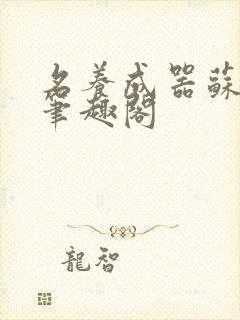 名養成器蘇
筆趣閣
龍智